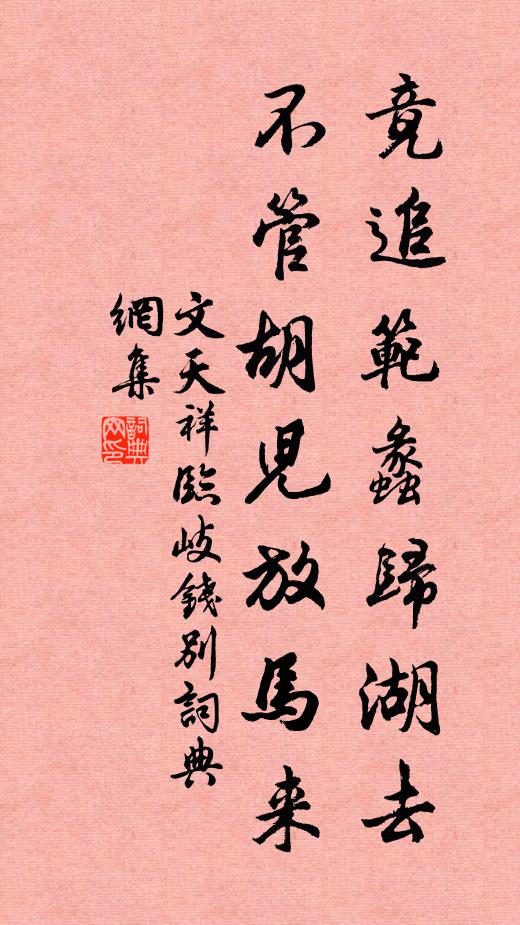 竟追範蠡歸湖去
不管胡兒放馬来
文天祥臨岐錢別詞典
網集
詞典
网印